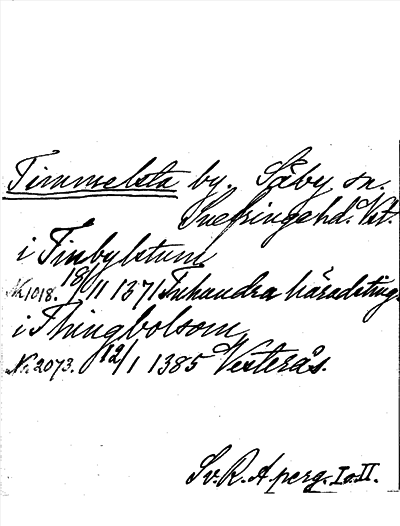 Timmelsta by. Säby sn.
Snefringe hd. Vst.
i Tinbylstum
N. 1018. 18/11 1371 Tuhundra häradsting.
i Thingbolsom
No. 2073. 12/1 1385 Vesterås.
Sv. R. A. perg. I o. II.